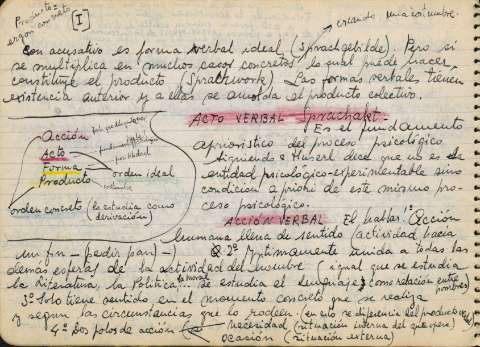 Producto =
ergon concreto
I
creando una costumbre.
con acusativo es forma verbal ideal (Sprachgebilde). Pero si
se multiplica en muchos casos concretos lo cual puede hacer
constituye el producto (Sprachwerk). Las formas verbales tienen
existencia anterior y a ellas se amolda el producto colectivo.
ACTO VERBAL Sprachakt-
Es el fundamento
apriorístico del proceso psicológico
siguiendo a Husserl dice que no es de
entidad psicológico-experimentable sino
condición a priori de este mismo pro-
ceso psicológico.
Acción
Acto
Forma
Producto
orden ideal
orden concreto (la estudia como
derivación)
ACCIÓN VERBAL El hablar. 1º Acción
humana llena de sentido (actividad hacia
un fin - (pedir pan) -) 2º Intimamente unida a todas las
demás esferas de la actividad del hombre (igual que se estudia
la Literatura, la Política... se estudia el lenguaje) como relación entre
hombres
3º Solo tiene sentido en el momento concreto que se realiza
y según las circunstancias que lo rodeen (en esto se diferencia del producto
4º Dos polos de acción
necesidad (situación interna del que opera)
ocasión (situación externa)